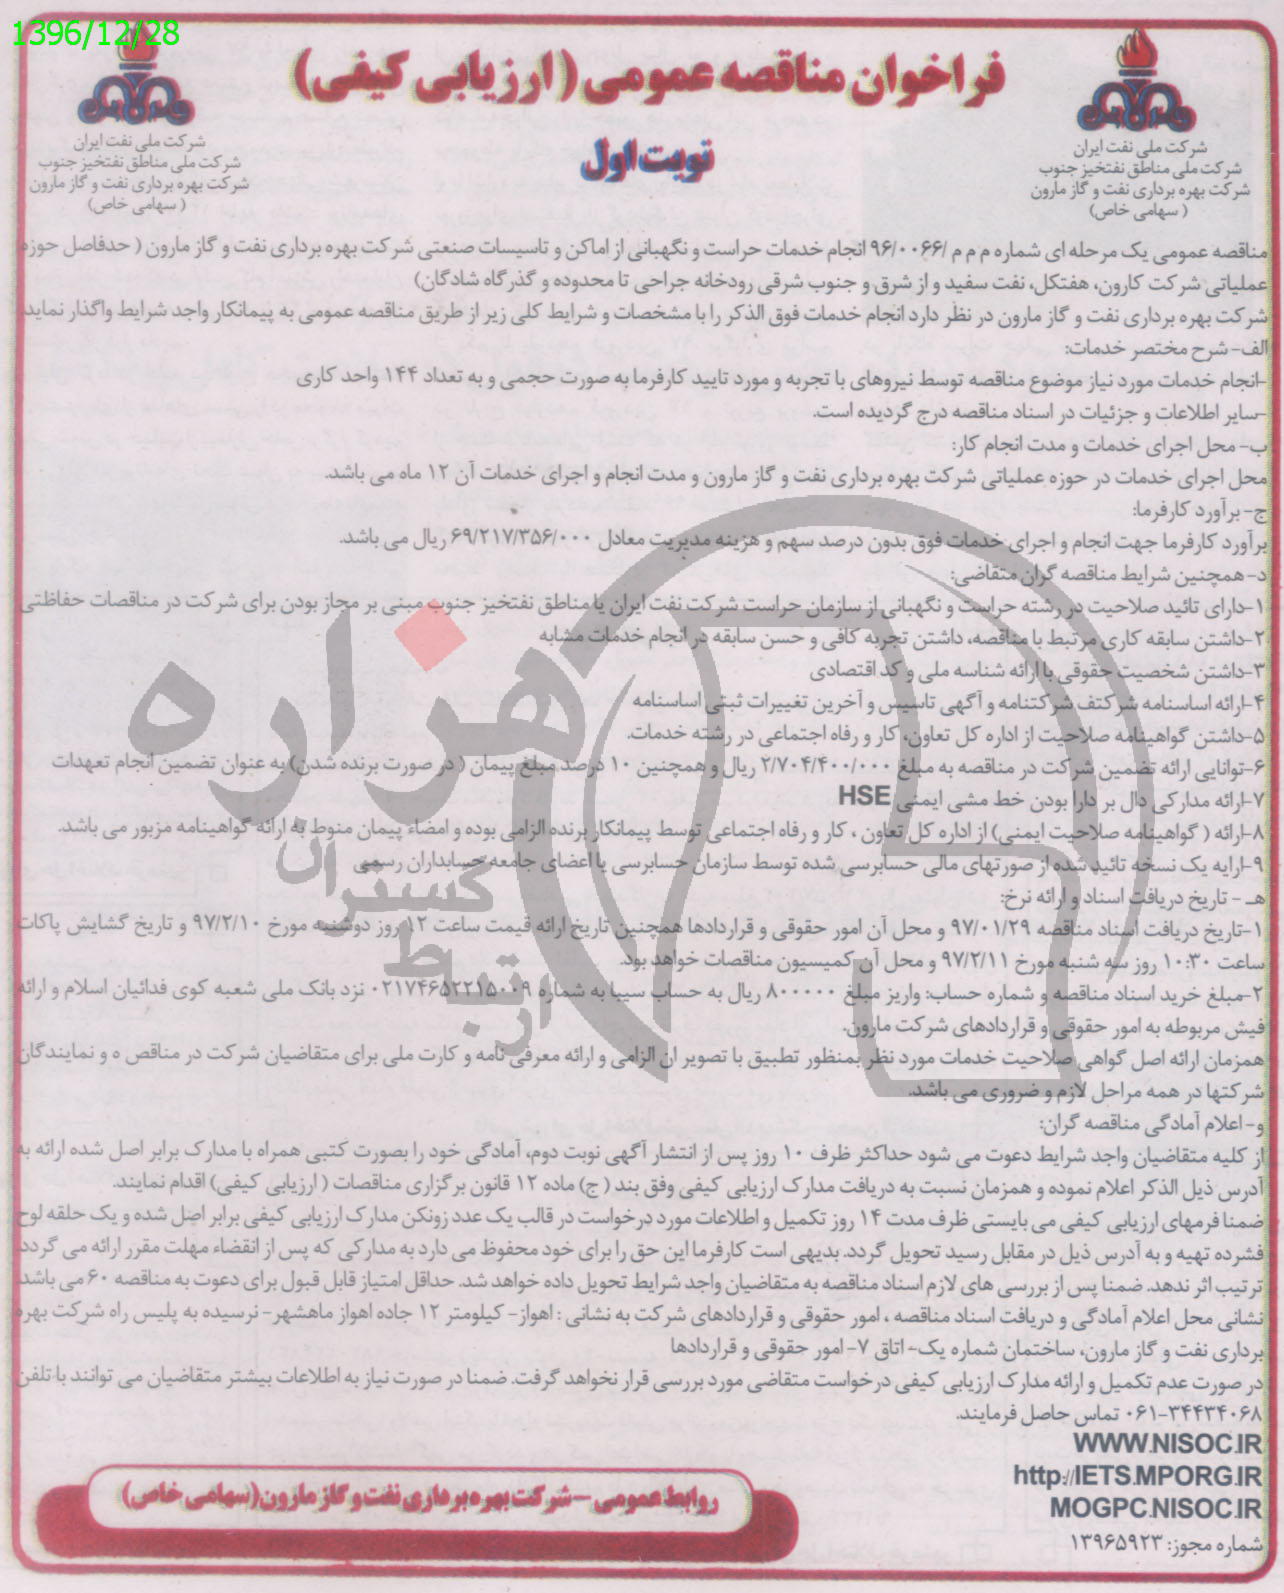 1396/12/28
فراخوان مناقصه عمومی (ارزیابی کیفی)
نوبت اول
شرکت ملی نفت ایران
شرکت ملی مناطق نفتخیز جنوب
شرکت بهره برداری نفت و گاز مارون
(سهامی خاص)
شرکت ملی نفت ایران
شرکت ملی مناطق نفتخیز جنوب
شرکت بهره برداری نفت و گاز مارون
(سهامی خاص)
مناقصه عمومی یک مرحله ای شماره م م م /۹۶/۰۰۶۶ انجام خدمات حراست و نگهبانی از اماکن و تاسیسات صنعتی شرکت بهره برداری نفت و گاز مارون (حدفاصل حوزه
عملیاتی شرکت کارون، هفتکل، نفت سفید و از شرق و جنوب شرقی رودخانه جراحی تا محدوده و گذرگاه شادگان)
شرکت بهره برداری نفت و گاز مارون در نظر دارد انجام خدمات فوق الذکر را با مشخصات و شرایط کلی زیر از طریق مناقصه عمومی به پیمانکار واجد شرایط واگذار نماید
الف- شرح مختصر خدمات:
-انجام خدمات مورد نیاز موضوع مناقصه توسط نیروهای با تجربه و مورد تایید کارفرما به صورت حجمی و به تعداد ۱۴۴ واحد کاری
-سایر اطلاعات و جزئیات در اسناد مناقصه درج گردیده است.
ب- محل اجرای خدمات و مدت انجام کار:
محل اجرای خدمات در حوزه عملیاتی شرکت بهره برداری نفت و گاز مارون و مدت انجام و اجرای خدمات آن ۱۲ ماه می باشد.
ج- برآورد کارفرما:
برآورد کارفرما جهت انجام و اجرای خدمات فوق بدون درصد سهم و هزینه مدیریت معادل ۶۹/۲۱۷/۳۵۶/۰۰۰ ریال می باشد.
د- همچنین شرایط مناقصه گران متقاضی:
۱-دارای تائید صلاحیت در رشته حراست و نگهبانی از سازمان حراست شرکت نفت ایران یا مناطق نفتخیز جنوب مبنی بر مجاز بودن برای شرکت در مناقصات حفاظتی
۲-داشتن سابقه کاری مرتبط با مناقصه، داشتن تجربه کافی و حسن سابقه در انجام خدمات مشابه
۳-داشتن شخصیت حقوقی با ارائه شناسه ملی و کد اقتصادی
۴-ارائه اساسنامه شرکتف شرکتنامه و آگهی تاسیس و آخرین تغییرات ثبتی اساسنامه
۵-داشتن گواهینامه صلاحیت از اداره کل تعاون، کار و رفاه اجتماعی در رشته خدمات.
۶-توانایی ارائه تضمین شرکت در مناقصه به مبلغ ۲/۷۰۴/۴۰۰/۰۰۰ ریال و همچنین ۱۰ درصد مبلغ پیمان (در صورت برنده شدن) به عنوان تضمین انجام تعهدات
۷-ارائه مدارکی دال بر دارا بودن خط مشی ایمنی HSE
۸-ارائه (گواهینامه صلاحیت ایمنی) از اداره کل تعاون، کار و رفاه اجتماعی توسط پیمانکار برنده الزامی بوده و امضاء پیمان منوط به ارائه گواهینامه مزبور می باشد.
۹-ارایه یک نسخه تائید شده از صورتهای مالی حسابرسی شده توسط سازمان حسابرسی یا اعضای جامعه حسابداران رسمی
هـ - تاریخ دریافت اسناد و ارائه نرخ:
۱-تاریخ دریافت اسناد مناقصه ۹۷/۰۱/۲۹ و محل آن امور حقوقی و قراردادها همچنین تاریخ ارائه قیمت ساعت ۱۲ روز دوشنبه مورخ ۹۷/۲/۱۰ و تاریخ گشایش پاکات
ساعت ۱۰:۳۰ روز سه شنبه مورخ ۹۷/۲/۱۱ و محل آن کمیسیون مناقصات خواهد بود.
۲-مبلغ خرید اسناد مناقصه و شماره حساب: واریز مبلغ ۸۰۰۰۰۰ ریال به حساب سیبا به شماره ۰۲۱۷۴۶۵۲۲۱۵۰۰۹ نزد بانک ملی شعبه کوی فدائیان اسلام و ارائه
فیش مربوطه به امور حقوقی و قراردادهای شرکت مارون.
همزمان ارائه اصل گواهی صلاحیت خدمات مورد نظر بمنظور تطبیق با تصویر ان الزامی و ارائه معرفی نامه و کارت ملی برای متقاضیان شرکت در مناقص ه و نمایندگان
شرکتها در همه مراحل لازم و ضروری می باشد.
و- اعلام آمادگی مناقصه گران:
از کلیه متقاضیان واجد شرایط دعوت می شود حداکثر ظرف ۱۰ روز پس از انتشار آگهی نوبت دوم، آمادگی خود را بصورت کتبی همراه با مدارک برابر اصل شده ارائه به
آدرس ذیل الذکر اعلام نموده و همزمان نسبت به دریافت مدارک ارزیابی کیفی وفق بند (ج) ماده ۱۲ قانون برگزاری مناقصات (ارزیابی کیفی) اقدام نمایند.
ضمنا فرمهای ارزیابی کیفی می بایستی ظرف مدت ۱۴ روز تکمیل و اطلاعات مورد درخواست در قالب یک عدد زونکن مدارک ارزیابی کیفی برابر اصل شده و یک حلقه لوح
فشرده تهیه و به آدرس ذیل در مقابل رسید تحویل گردد. بدیهی است کارفرما این حق را برای خود محفوظ می دارد به مدارکی که پس از انقضاء مهلت مقرر ارائه می گردد
ترتیب اثر ندهد. ضمنا پس از بررسی های لازم اسناد مناقصه به متقاضیان واجد شرایط تحویل داده خواهد شد. حداقل امتیاز قابل قبول برای دعوت به مناقصه ۶۰ می باشد
نشانی محل اعلام آمادگی و دریافت اسناد مناقصه، امور حقوقی و قراردادهای شرکت به نشانی: اهواز- کیلومتر ۱۲ جاده اهواز ماهشهر- نرسیده به پلیس راه شرکت بهره
برداری نفت و گاز مارون، ساختمان شماره یک- اتاق ۷- امور حقوقی و قراردادها
در صورت عدم تکمیل و ارائه مدارک ارزیابی کیفی درخواست متقاضی مورد بررسی قرار نخواهد گرفت. ضمنا در صورت نیاز به اطلاعات بیشتر متقاضیان می توانند با تلفن
۰۶۱-۳۴۴۳۴۰۶۸ تماس حاصل فرمایند.
WWW.NISOC.IR
http://IETS.MPORG.IR
MOGPC.NISOC.IR
شماره مجوز: ۱۳۹۶۵۹۲۳
روابط عمومی - شرکت بهره برداری نفت و گاز مارون (سهامی خاص)
هزاره
گستران
ارتباط